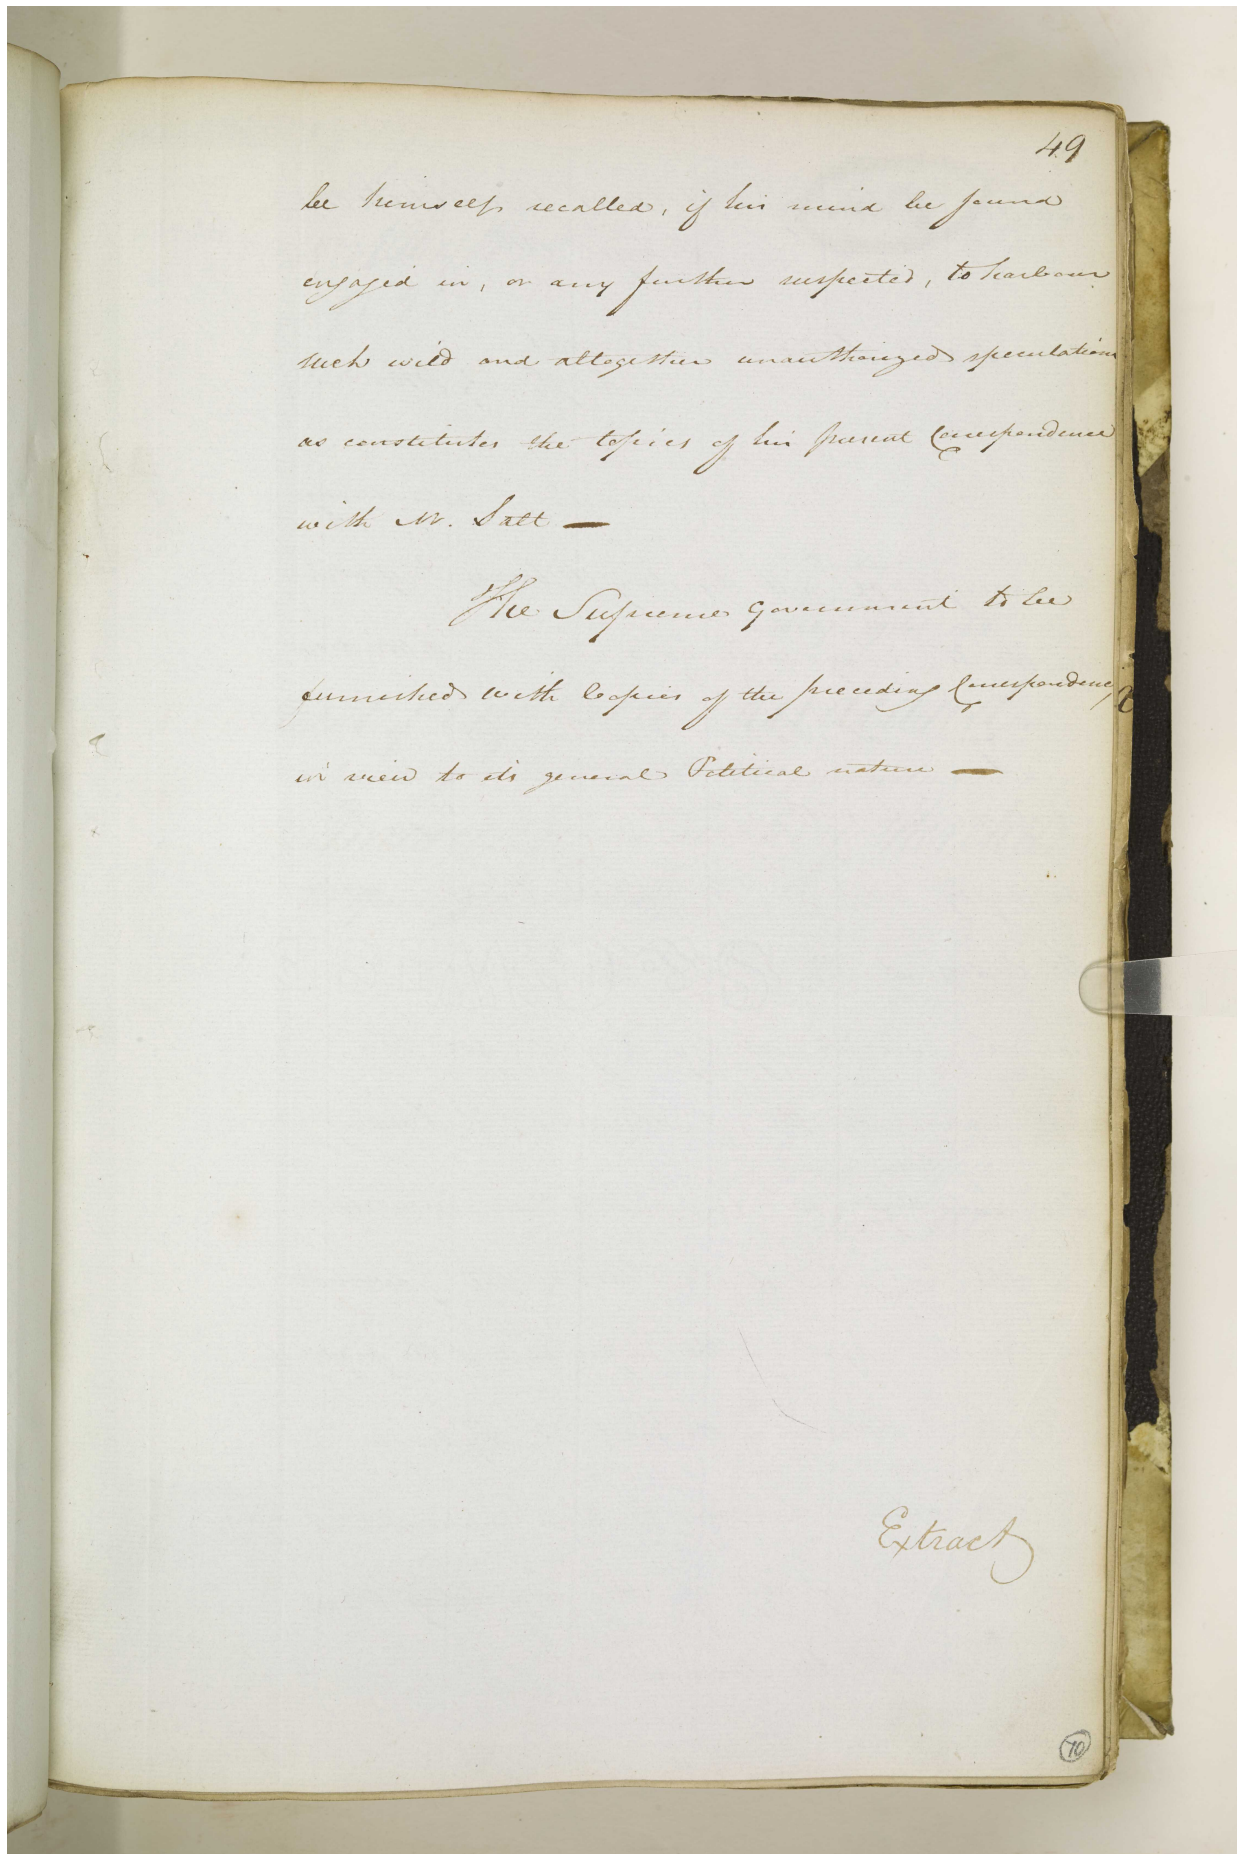 49
be himself recalled, if his mind be found
engaged in, or any further suspected, to harbour
such wild and altogether unauthorized speculations
as constitutes the topics of his present Correspondence
with Mr. Salt —
The Supreme Government to be
furnished with Copies of the preceding Correspondence
in view to its general Political nature —
Extract
70